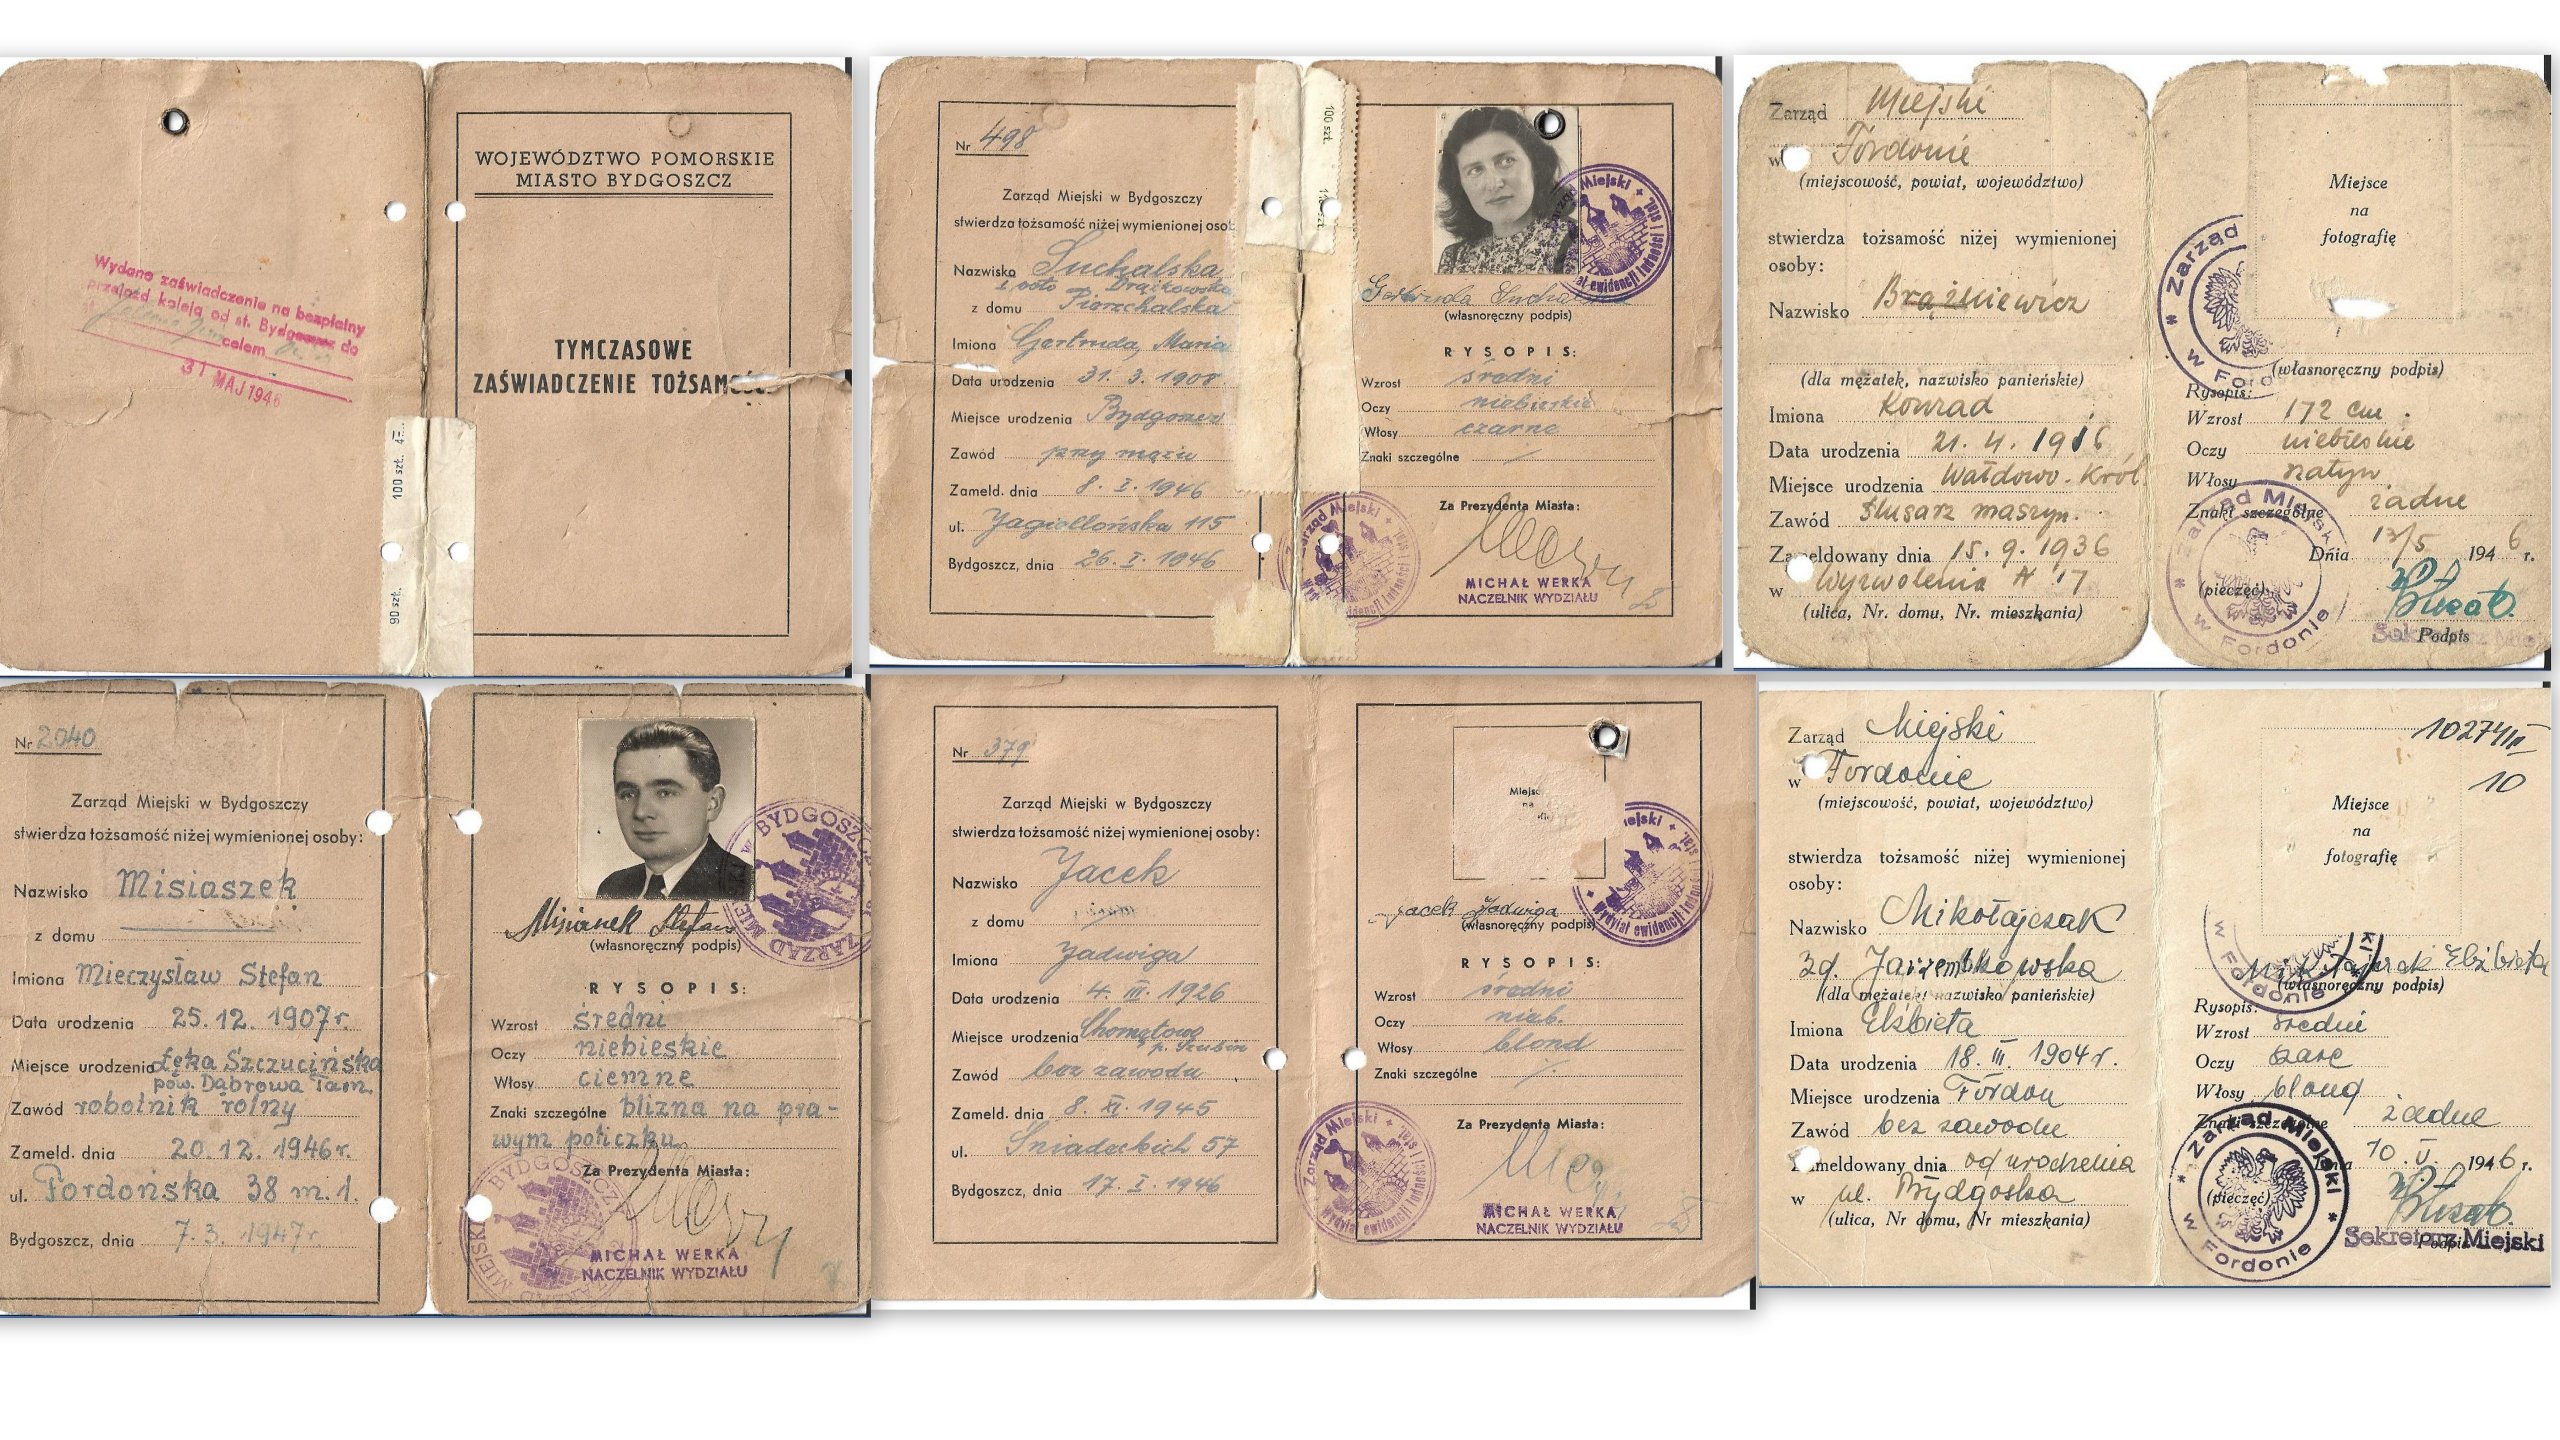 Wydano zaświadczenie na bezpłatny
przejazd koleją od st. Bydgoszcz do
celem
31 MAJ 1946
WOJEWÓDZTWO POMORSKIE
MIASTO BYDGOSZCZ
TYMCZASOWE
ZAŚWIADCZENIE TOŻSAMOŚC
100 szt.
90 szt.
Nr 498
Zarząd Miejski w Bydgoszczy
stwierdza tożsamość niżej wymienionej osob
Nazwisko Suchalska
z domu Piorzchalska
Imiona Gertruda, Maria
Data urodzenia 31. 3. 1908
Miejsce urodzenia Bydgoszcz
Zawód przy mężu
Zameld. dnia 8. I. 1946
ul. Jagiellońska 115
Bydgoszcz, dnia 26. I. 1946
100 szt.
Gertruda
(własnoręczny podpis)
RYSOPIS:
Wzrost średni
Oczy niebieskie
Włosy czarne
Znaki szczególne /
Za Prezydenta Miasta:
MICHAŁ WERKA
NACZELNIK WYDZIAŁU
Zarząd Miejski
w Fordonie
(miejscowość, powiat, województwo)
stwierdza tożsamość niżej wymienionej
osoby:
Nazwisko Brążkiewicz
(dla mężatek, nazwisko panieńskie)
Imiona Konrad
Data urodzenia 21. 4. 1916
Miejsce urodzenia Wałdowo-Król.
Zawód ślusarz maszyn.
Zameldowany dnia 15. 9. 1936
w Wyzwolenia N 17
(ulica, Nr. domu, Nr. mieszkania)
Miejsce
na
fotografię
Zarząd
w Ford
(własnoręczny podpis)
Rysopis:
Wzrost 172 cm.
Oczy niebieskie
Włosy
Znaki szczególne żadne
Dnia 13/5 1946 r.
(pieczęć)
Zarząd Miejski w Fordonie
Podpis
Nr 2040
Zarząd Miejski w Bydgoszczy
stwierdza tożsamość niżej wymienionej osoby:
Nazwisko Misiaszek
z domu
Imiona Mieczysław Stefan
Data urodzenia 25. 12. 1907 r.
Miejsce urodzenia Łęka Szczucińska
pow. Dąbrowa Tarn.
Zawód robotnik rolny
Zameld. dnia 20. 12. 1946 r.
ul. Fordońska 38 m. 1.
Bydgoszcz, dnia 7. 3. 1947 r.
Stefan
(własnoręczny podpis)
RYSOPIS:
Wzrost średni
Oczy niebieskie
Włosy ciemne
Znaki szczególne blizna na pra-
wym policzku
Za Prezydenta Miasta:
MICHAŁ WERKA
NACZELNIK WYDZIAŁU
Nr 379
Zarząd Miejski w Bydgoszczy
stwierdza tożsamość niżej wymienionej osoby:
Nazwisko Jacek
z domu
Imiona Jadwiga
Data urodzenia 4. III. 1926
Miejsce urodzenia Chomętowo
p. Szubin
Zawód bez zawodu
Zameld. dnia 8. XI. 1945
ul. Śniadeckich 57
Bydgoszcz, dnia 17. I. 1946
Jacek Jadwiga
(własnoręczny podpis)
RYSOPIS:
Wzrost średni
Oczy nieb.
Włosy blond
Znaki szczególne /.
Za Prezydenta Miasta:
MICHAŁ WERKA
NACZELNIK WYDZIAŁU
Zarząd Miejski
w Fordonie
(miejscowość, powiat, województwo)
stwierdza tożsamość niżej wymienionej
osoby:
Nazwisko Mikołajczak
zd. Jarzembkowska
(dla mężatek, nazwisko panieńskie)
Imiona Elżbieta
Data urodzenia 18. III. 1904 r.
Miejsce urodzenia Fordon
Zawód bez zawodu
Zameldowany dnia od urodzenia
w ul. Bydgoska
(ulica, Nr domu, Nr mieszkania)
10
Miejsce
na
fotografię
Elżbieta
(własnoręczny podpis)
Rysopis:
Wzrost średni
Oczy szare
Włosy blond
Znaki szczególne żadne
Dnia 10. V. 1946 r.
(pieczęć)
Zarząd Miejski w Fordonie
Sekretarz Miejski
Podpis